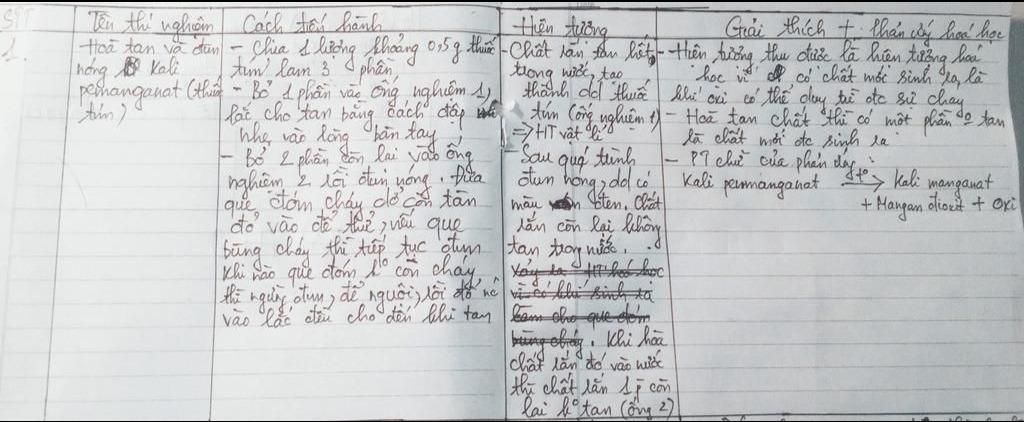 STT
Tên thí nghiệm
Cách tiến hành
Hiện tượng
Giải thích + phản ứng hoá học
1.
- Hoà tan và đun
nóng Kali
pemanganat (thuốc
tím)
- Chia 1 lượng khoảng 0,5g thuốc
tím làm 3 phần
- Bỏ 1 phần vào ống nghiệm 1,
lắc cho tan bằng cách đập
nhẹ vào lòng bàn tay
- Bỏ 2 phần còn lại vào ống
nghiệm 2 rồi đun nóng. Đưa
que đóm cháy dở còn tàn
đỏ vào để thử, nếu que
bùng cháy thì tiếp tục đun
khi nào que đóm k° còn cháy
thì ngừng đun, để nguội, rồi đổ nc
vào lắc đều cho đến khi tan
- Chất rắn tan hết
trong nước, tạo
thành dd thuốc
tím (ống nghiệm 1)
=> HT vật lí
- Sau quá trình
đun nóng, dd có
màu đen. Chất
rắn còn lại không
tan trong nước.
Vậy là HT hoá học
vì có khí sinh ra
làm cho que đóm
bùng cháy. Khi hoà
chất rắn đó vào nước
thì chất rắn 1 p còn
lại k° tan (ống 2)
- Hiện tượng thu được là hiện tượng hoá
học vì có chất mới sinh ra, là
khí oxi có thể duy trì đc sự cháy
- Hoà tan chất thì có một phần k° tan
là chất mới đc sinh ra
- PT chữ của phản ứng:
Kali penmanganat t° → Kali manganat
+ Mangan đioxit + Oxi